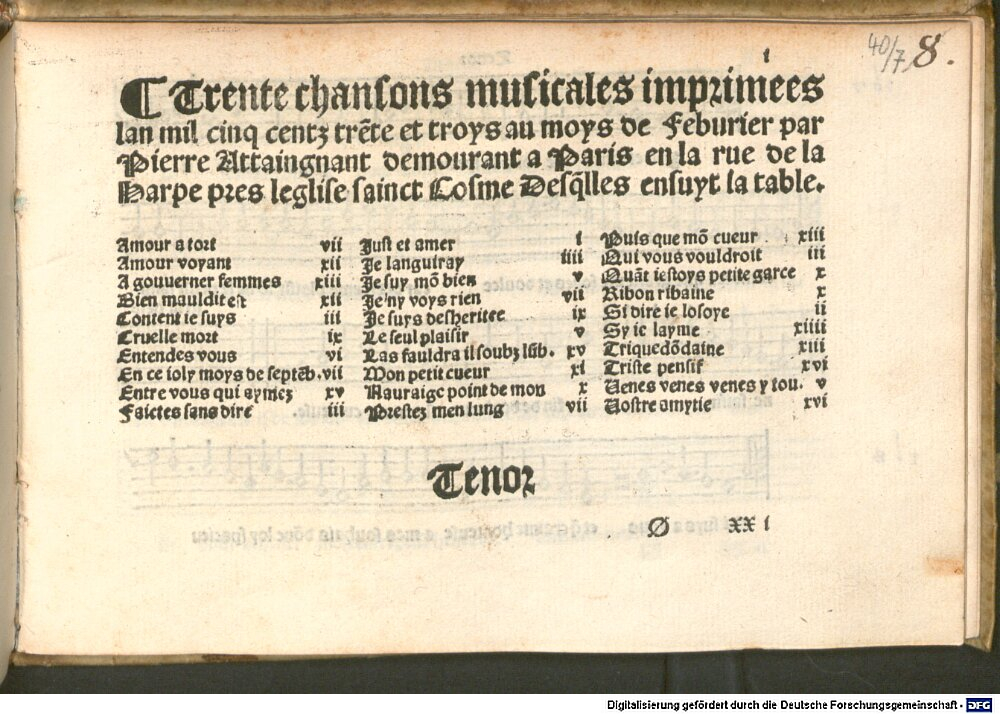 i
40/7, 8.
¶ Trente chansons musicales imprimees
lan mil cinq centz trẽte et troys au moys de Feburier par
Pierre Attaingnant demourant a Paris en la rue de la
Harpe pres leglise sainct Cosme Desq̃lles ensuyt la table.
Amour a tort vii
Amour voyant xii
A gouuerner femmes xiii
Bien mauldit est xii
Content ie suys iii
Cruelle mort ix
Entendes vous vi
En ce ioly moys de septẽb. vii
Entre vous qui aymez xv
Faictes sans dire iii
Iust et amer i
Je languiray iiii
Je suy mõ bien v
Je ny voys rien vii
Je suys desheritee ix
Le seul plaisir v
Las fauldra il soubz lũb. xv
Mon petit cueur xi
Nauraige point de mon x
Prestez men lung vii
Puis que mõ cueur xiii
Qui vous vouldroit iii
Quãt iestoys petite garce x
Ribon ribaine x
Si dire ie losoye ii
Sy ie layme xiiii
Triquedõdaine xiii
Triste pensif xvi
Uenes venes venes y tou. v
Uostre amytie xvi
Tenor
Ø xx i
Digitalisierung gefördert durch die Deutsche Forschungsgemeinschaft - DFG